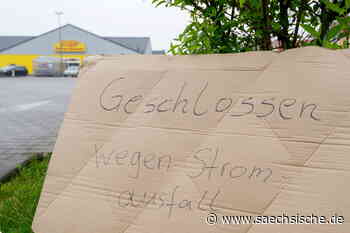 Geschlossen
wegen Strom-
ausfall
© www.saechsische.de